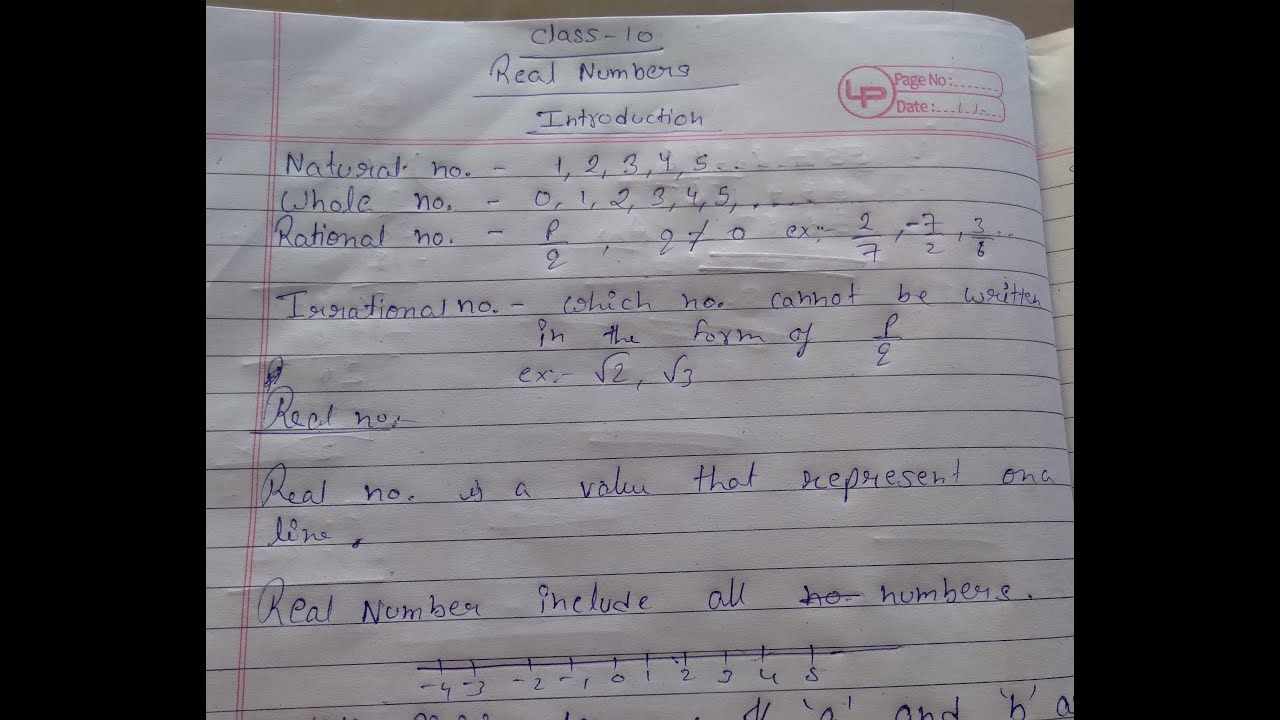 Class-10
Real Numbers
LP Page No:.......
Date:...../...../.....
Introduction
Natural no. - 1, 2, 3, 4, 5.......
Whole no. - 0, 1, 2, 3, 4, 5, .....
Rational no. - p/q , q ≠ 0 ex:- 2/7, -7/2, 3/8 ..
Irrational no. - which no. cannot be written
in the form of p/q
ex:- √2, √3
Real no:-
Real no. is a value that represent on a
line.
Real Number include all no. numbers.
-4 -3 -2 -1 0 1 2 3 4 5
If 'a' and 'b' a